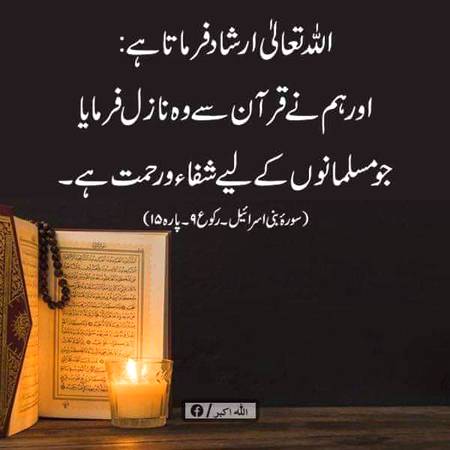 اللہ تعالیٰ ارشاد فرماتا ہے:
اور ہم نے قرآن سے وہ نازل فرمایا
جو مسلمانوں کے لیے شفاء و رحمت ہے۔
(سورۂ بنی اسرائیل۔ رکوع ۹۔ پارہ ۱۵)
اللہ اکبر /f